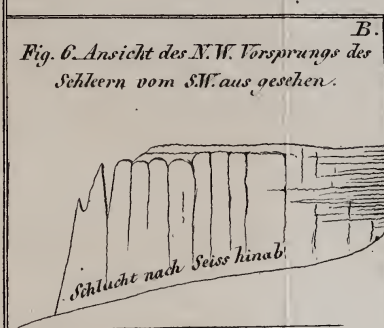 B.
Fig. 6. Ansicht des N.W. Vorsprungs des
Schleern vom S.W. aus gesehen.
Schlucht nach Seiss hinab